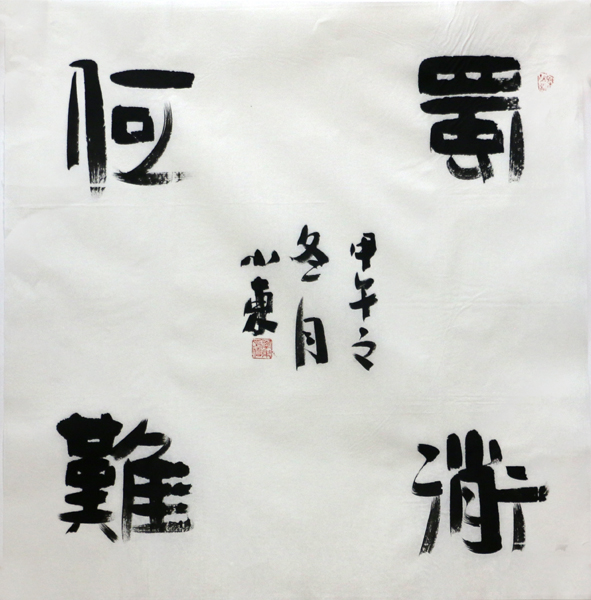 蜀衟
何難
甲午之
冬月
小東